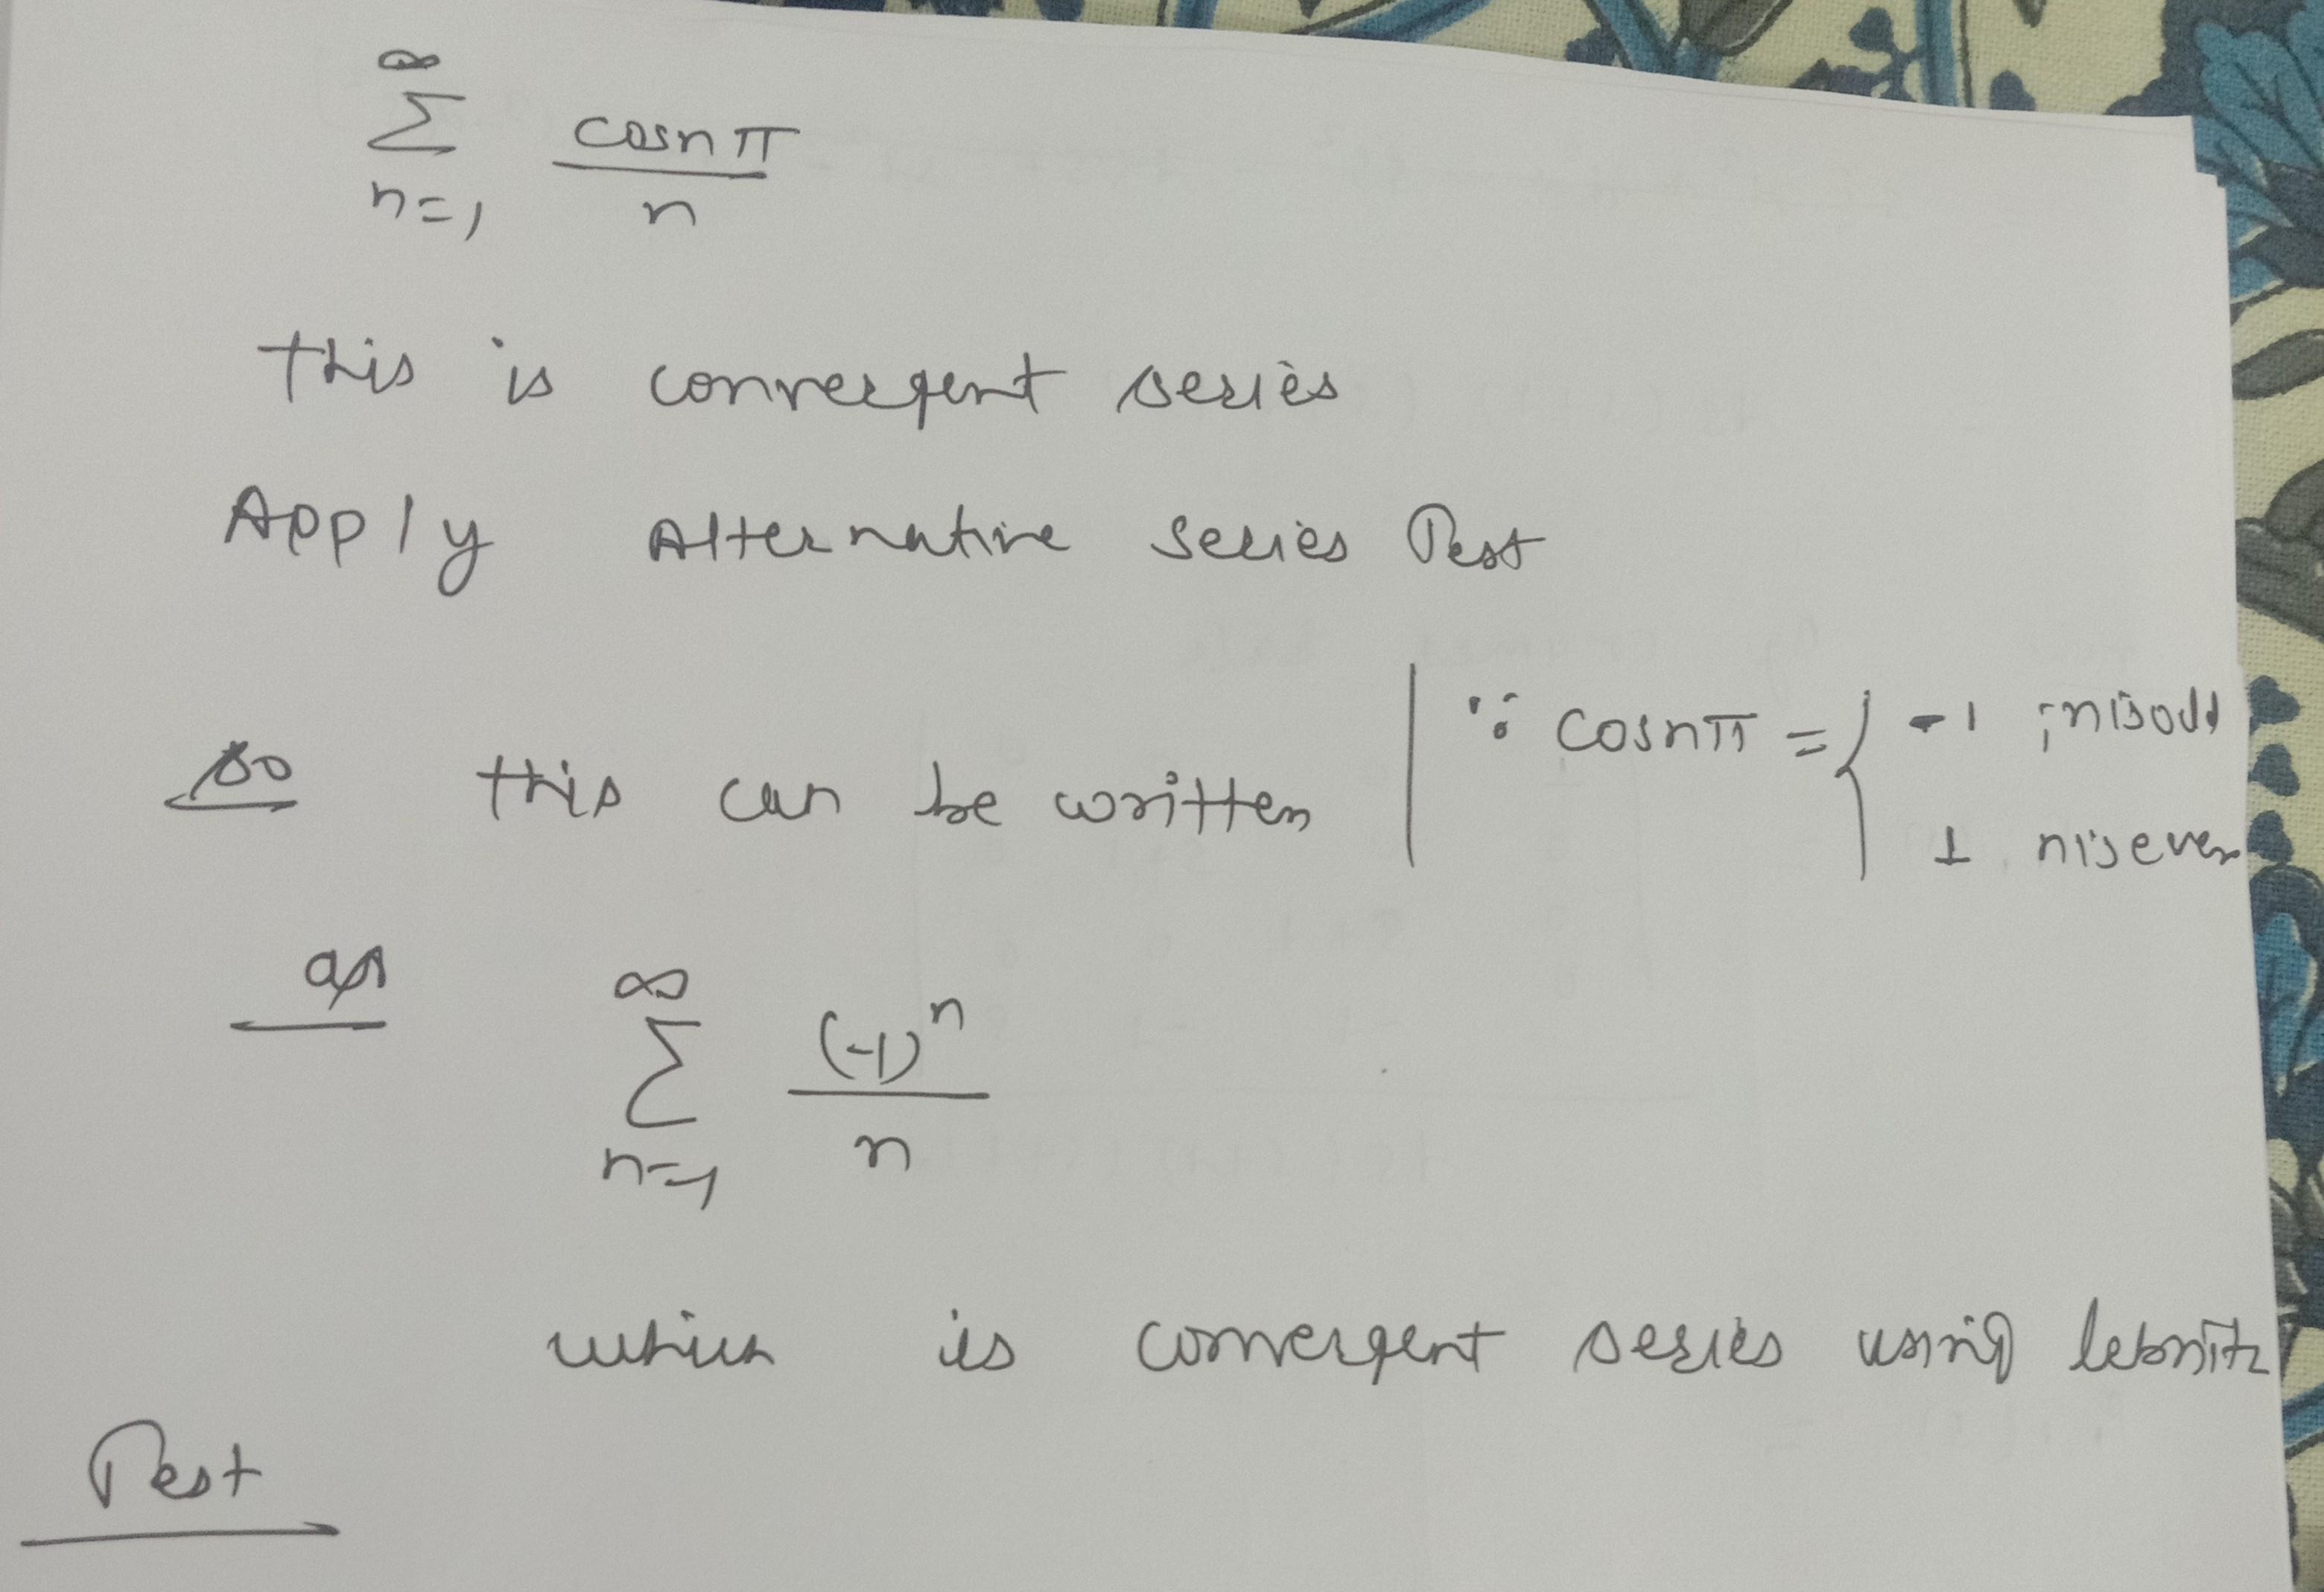 ∞
Σ cosnπ
n=1 n
this is convergent series
Apply Alternative series Test
so this can be written | ∵ cosnπ = { -1 ; n is odd
1 n is even
as ∞
Σ (-1)ⁿ
n=1 n
which is convergent series using lebnitz
Test